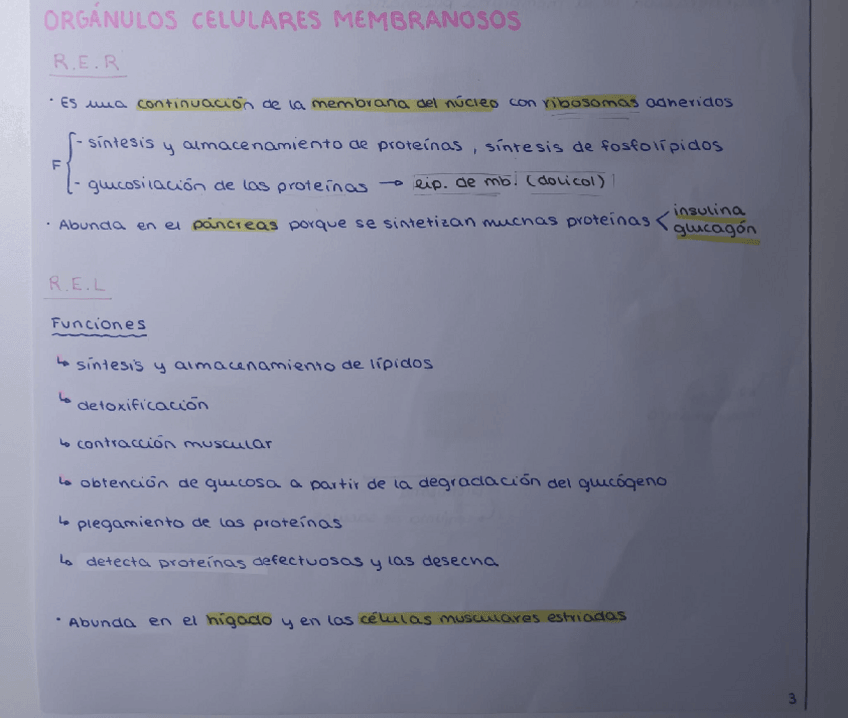 ORGÁNULOS CELULARES MEMBRANOSOS
R.E.R
· Es una continuación de la membrana del núcleo con ribosomas adheridos
F
- síntesis y almacenamiento de proteínas, síntesis de fosfolípidos
- glucosilación de las proteínas → lip. de mb. (dolicol)
· Abunda en el páncreas porque se sintetizan muchas proteínas < insulina
glucagón
R.E.L
Funciones
↳ síntesis y almacenamiento de lípidos
↳ detoxificación
↳ contracción muscular
↳ obtención de glucosa a partir de la degradación del glucógeno
↳ plegamiento de las proteínas
↳ detecta proteínas defectuosas y las desecha
· Abunda en el hígado y en las células musculares estriadas
3